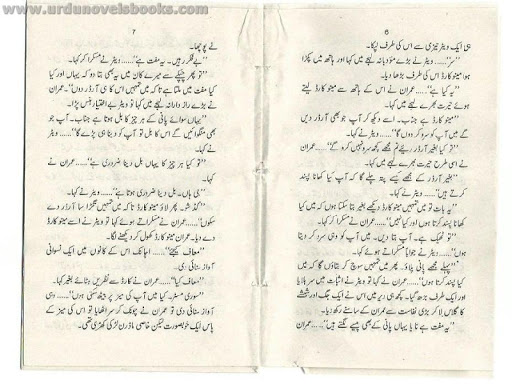 www.urdunovelsbooks.com
6
ہی ایک ویٹر تیزی سے اس کی طرف لپکا۔
"سر"...... ویٹر نے بڑے مؤدبانہ لہجے میں کہا اور ہاتھ میں پکڑا
ہوا مینو کارڈ اس کی طرف بڑھا دیا۔
"یہ کیا ہے"...... عمران نے اس کے ہاتھ سے مینو کارڈ لیتے
ہوئے حیرت بھرے لہجے میں کہا۔
"مینو کارڈ ہے جناب۔ اسے دیکھ کر آپ جو بھی آرڈر دیں
گے میں آپ کو سرو کر دوں گا"...... ویٹر نے کہا۔
"تو کیا بغیر آرڈر لئے تم مجھے کچھ سرو نہیں کرو گے"...... عمران
نے اسی طرح حیرت بھرے لہجے میں کہا۔
"بغیر آرڈر کے مجھے کیسے پتہ چلے گا کہ آپ کیا کھانا پسند
کرتے ہیں"...... ویٹر نے کہا۔
"یہ بات تو میں تمہیں مینو کارڈ دیکھے بغیر بتا سکتا ہوں کہ میں کیا
کھانا پسند کرتا ہوں اور کیا نہیں"...... عمران نے مسکرا کر کہا۔
"تو ٹھیک ہے۔ آپ بتا دیں۔ میں آپ کو وہی سرو کر دیتا
ہوں"...... ویٹر نے جواباً مسکراتے ہوئے کہا۔
"پہلے مجھے پانی پلاؤ۔ پھر میں تمہیں سوچ کر بتاؤں گا کہ میں
کیا پسند کرتا ہوں"...... عمران نے کہا تو ویٹر نے اثبات میں سر ہلایا
اور ایک طرف بڑھ گیا۔ کچھ ہی دیر میں اس نے ایک جگ اور شیشے
کا گلاس لا کر بڑی نفاست سے عمران کے سامنے رکھ دیا۔
"یہ مفت ہے نا یا یہاں پانی کے بھی پیسے لگتے ہیں"...... عمران
7
نے پوچھا۔
"بے فکر رہیں۔ یہ مفت ہے"...... ویٹر نے مسکرا کر کہا۔
"تو پھر چپکے سے میرے کان میں یہ بھی بتا دو کہ یہاں اور کیا
کیا مفت میں ملتا ہے تاکہ میں تمہیں اس کا ہی آرڈر دوں"۔ عمران
نے بڑے راز دارانہ لہجے میں کہا تو ویٹر بے اختیار ہنس پڑا۔
"یہاں سوائے پانی کے ہر چیز کا بل ہوتا ہے جناب۔ آپ جو
بھی منگوائیں گے اس کا بل تو آپ کو دینا ہی پڑے گا"...... ویٹر
نے کہا۔
"تو کیا ہر چیز کا یہاں بل دینا ضروری ہے"...... عمران نے
کہا۔
"جی ہاں۔ بل دینا ضروری ہوتا ہے"...... ویٹر نے کہا۔
"گڈ شو۔ پھر لاؤ مینو کارڈ تاکہ میں تمہیں تگڑا سا آرڈر دے
سکوں"...... عمران نے مسکراتے ہوئے کہا تو ویٹر نے اسے مینو کارڈ
دے دیا۔ عمران مینو کارڈ کھول کر دیکھنے لگا۔
"معاف کیجئے"...... اچانک اس کے کانوں میں ایک نسوانی
آواز سنائی دی۔
"معاف کیا"...... عمران نے کارڈ سے نظریں ہٹائے بغیر کہا۔
"سوری مسٹر۔ کیا میں آپ کی میز پر بیٹھ سکتی ہوں"...... وہی
آواز سنائی دی تو عمران نے چونک کر سر اٹھایا تو اس کی میز کے
پاس ایک خوبصورت لیکن خاصی ماڈرن لڑکی کھڑی تھی۔